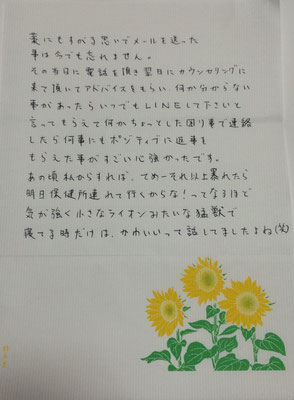 藁にもすがる思いでメールを送った
事は今でも忘れません。
その当日に電話を頂き翌日にカウンセリングに
来て頂いてアドバイスをもらい、何か分からない
事があったらいつでもLINEして下さいと
言ってもらえて何かちょっとした困り事で連絡
したら何事にもポジティブに返事を
もらえた事がすごい心強かったです。
あの頃私からすれば、てめーそれ以上暴れたら
明日保健所連れて行くからな!ってなるほど
気が強く小さなライオンみたいな猛獣で
寝てる時だけは、かわいいって話してましたよね(笑)